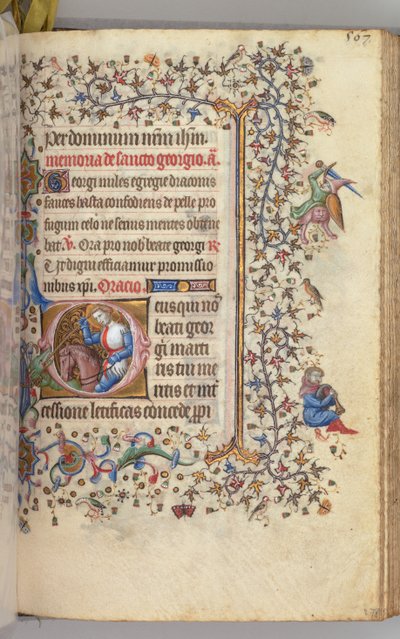 507
Per dominum nrm ihm.
memoria de sancto georgio. a.
Georgi miles egregie draconis
fauces hasta confodiens de pelle pro
fugum celo ne seuus mentes
bat. V. Ora pro nob beate georgi R
Vt digni efficiamur promissio
nibus xpi. Oracio.
Deus qui nos
beati geor
gii marti
ris tui me
ritis et int
cessione letificas concede ppi